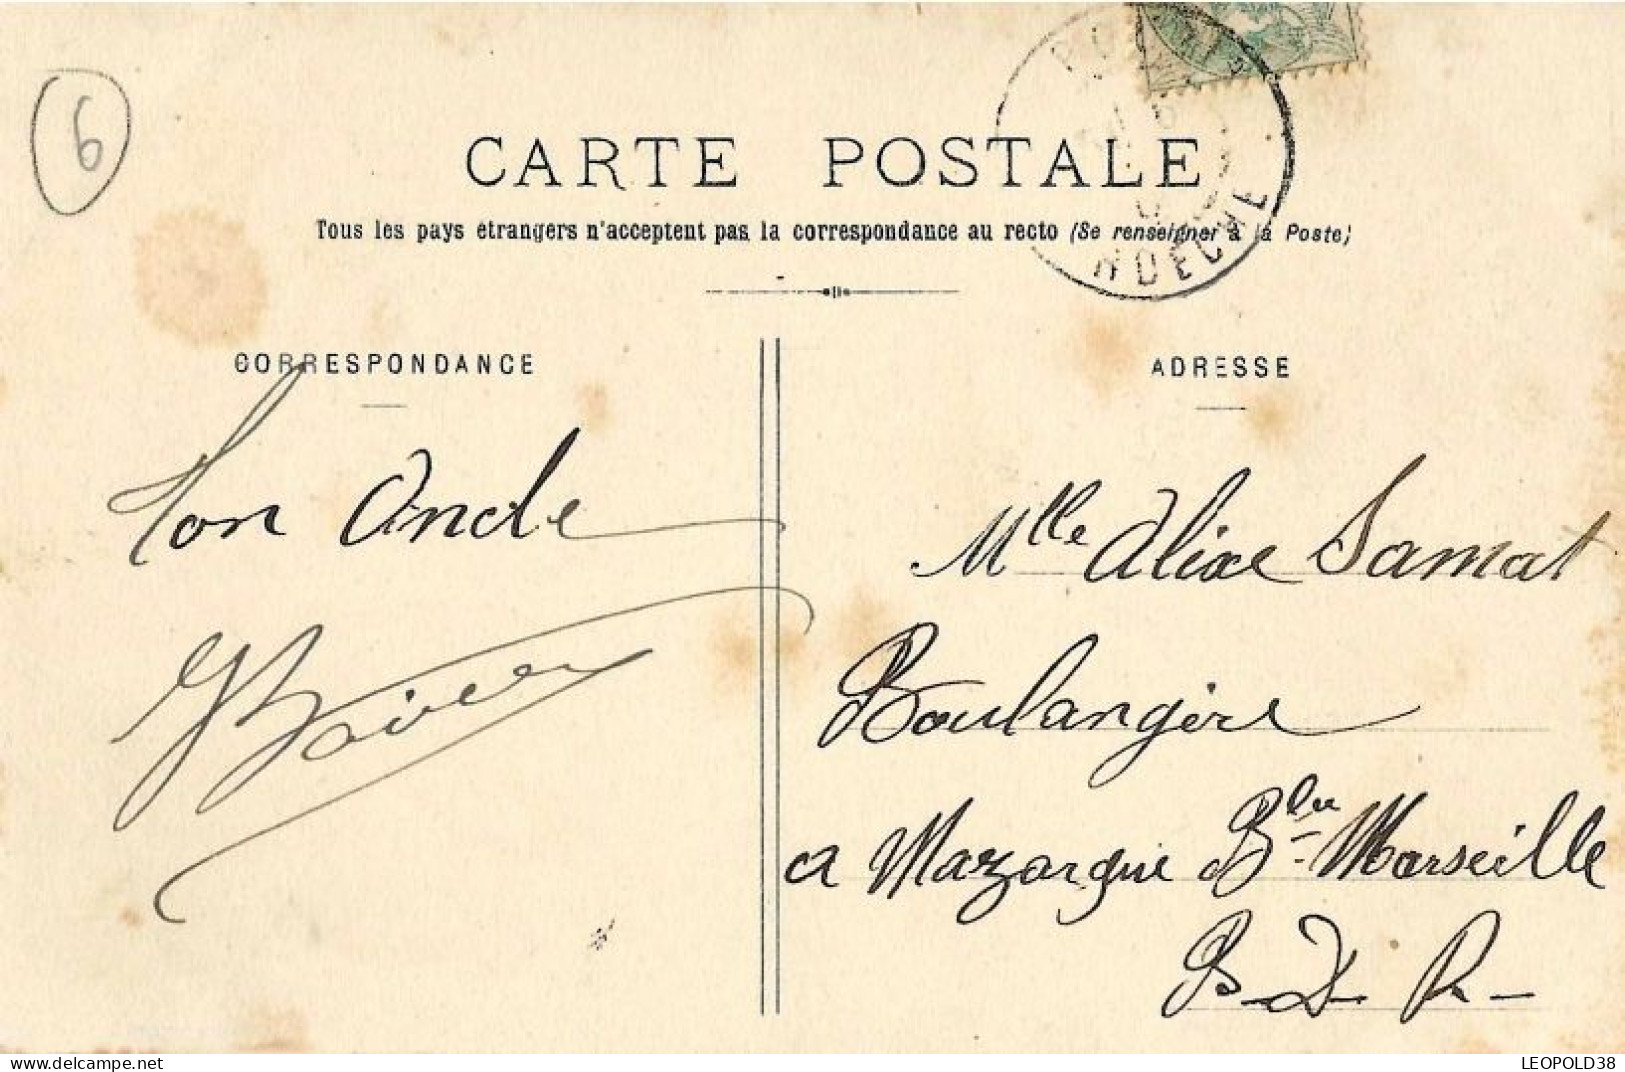 6
CARTE POSTALE
Tous les pays étrangers n'acceptent pas la correspondance au recto (Se renseigner à la Poste)
ARDECHE
CORRESPONDANCE
Ton Oncle
ADRESSE
Mlle Alixe Samat
Boulangère
a Mazargue Blu Marseille
B-D-R-
www.delcampe.net
LEOPOLD38